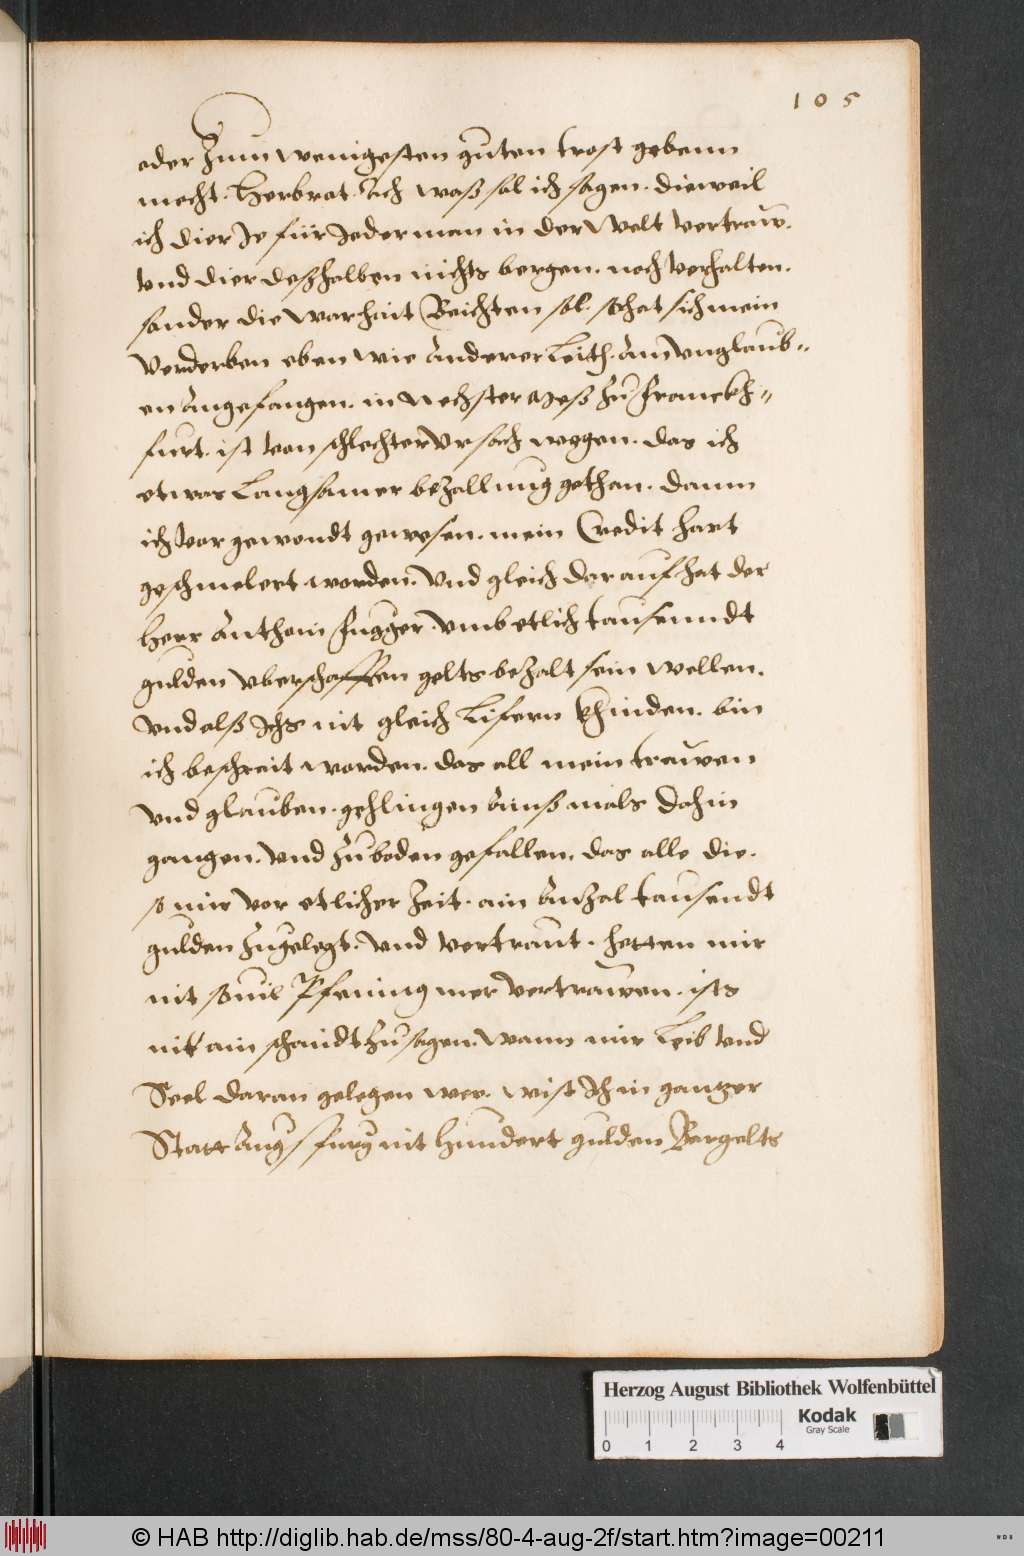 105
oder Zum wenigesten guten trost gebenn
mecht. Herbrot. Ach waß sol ich sagen. dieweil
ich dier Je für Jederman in der Welt vertraw.
vnd dier deßhalben nichts bergen. noch verhalten.
sonder die warhait Beichten sol. so hat sich mein
Verderben eben wie Anderer Leith. Am vnglaub-
en Angefangen. in nechster Meß Zu Franckh-
furt. ist von schlechter vrsach weggen. das ich
etwas Langsamer bezallung gethan. dann
ich vor gewondt gewesen. mein Credit hart
geschmelert worden. Vnd gleich darauf hat der
Herr Anthoni Fugger. vmb etlich tausenndt
gulden vberschafften gelts bezalt sein wellen.
Vnd alß Ichs nit gleich Lifern khinden. bin
ich beschrait worden. das all mein trawen
vnd glauben. gehlingen Ainßmals dahin
gangen. Vnd Zu boden gefallen. das alle die.
so mir vor etlicher Zeit. ain Anzal tausendt
gulden Zugelegt. Vnd vertraut. hetten mir
nit souil Pfening mer vertrawen. ists
nit ain schandt Zu sagen. Wann mir Leib vnd
Seel daran gelegen wer. wist Ich in gantzer
Statt Augspurg nit hundert gulden Bargelts
Herzog August Bibliothek Wolfenbüttel
Kodak
Gray Scale
0 1 2 3 4
© HAB http://diglib.hab.de/mss/80-4-aug-2f/start.htm?image=00211